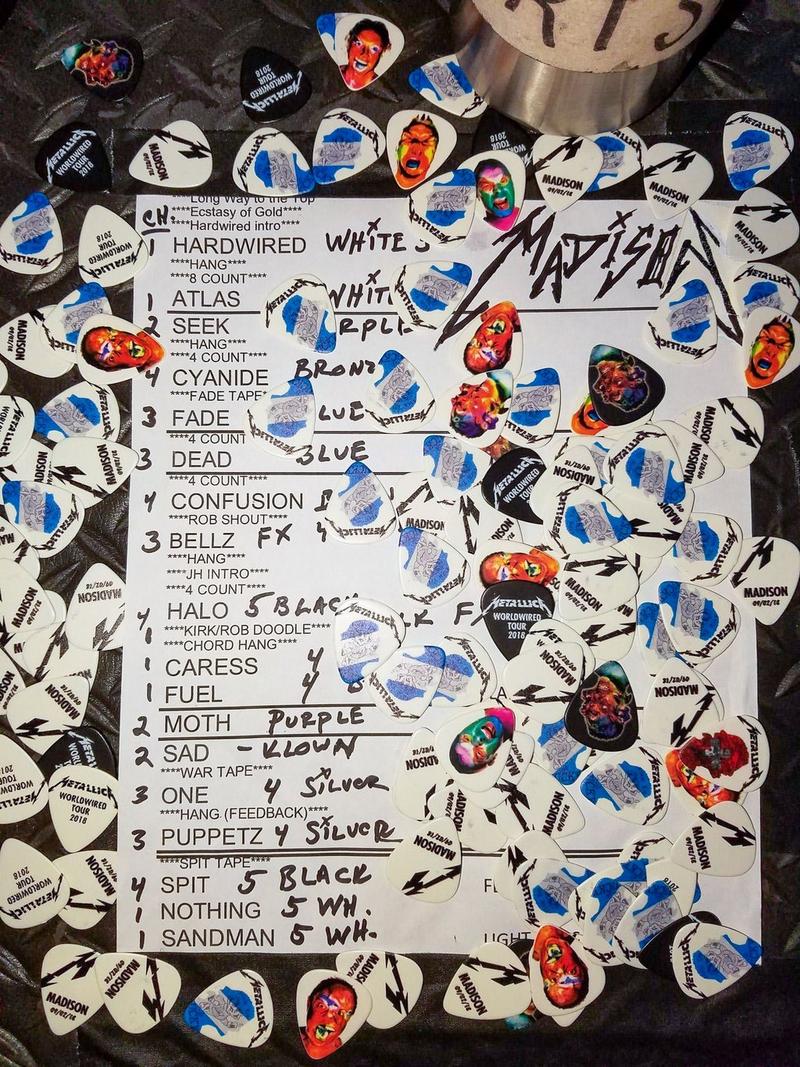 RTS
METALLICA
WORLDWIRED
TOUR
2018
MADISON
09/02/18
Long Way to the Top
****Ecstasy of Gold****
****Hardwired intro****
CH.
MADISON
1 HARDWIRED WHITE
****HANG****
****8 COUNT****
1 ATLAS WHIT
2 SEEK RPLE
****HANG****
****4 COUNT****
4 CYANIDE BRONZ
****FADE TAPE
3 FADE LUE
****4 COUNT
3 DEAD BLUE
****4 COUNT****
4 CONFUSION
****ROB SHOUT****
3 BELLZ FX 4
****HANG****
****JH INTRO****
****4 COUNT****
4 HALO 5 BLACK
****KIRK/ROB DOODLE****
****CHORD HANG****
1 CARESS 4
1 FUEL 4
2 MOTH PURPLE
2 SAD - KLOWN
****WAR TAPE****
3 ONE 4 SILVER
****HANG (FEEDBACK)****
3 PUPPETZ 4 SILVER
****SPIT TAPE****
4 SPIT 5 BLACK
1 NOTHING 5 WH.
1 SANDMAN 5 WH. LIGHT